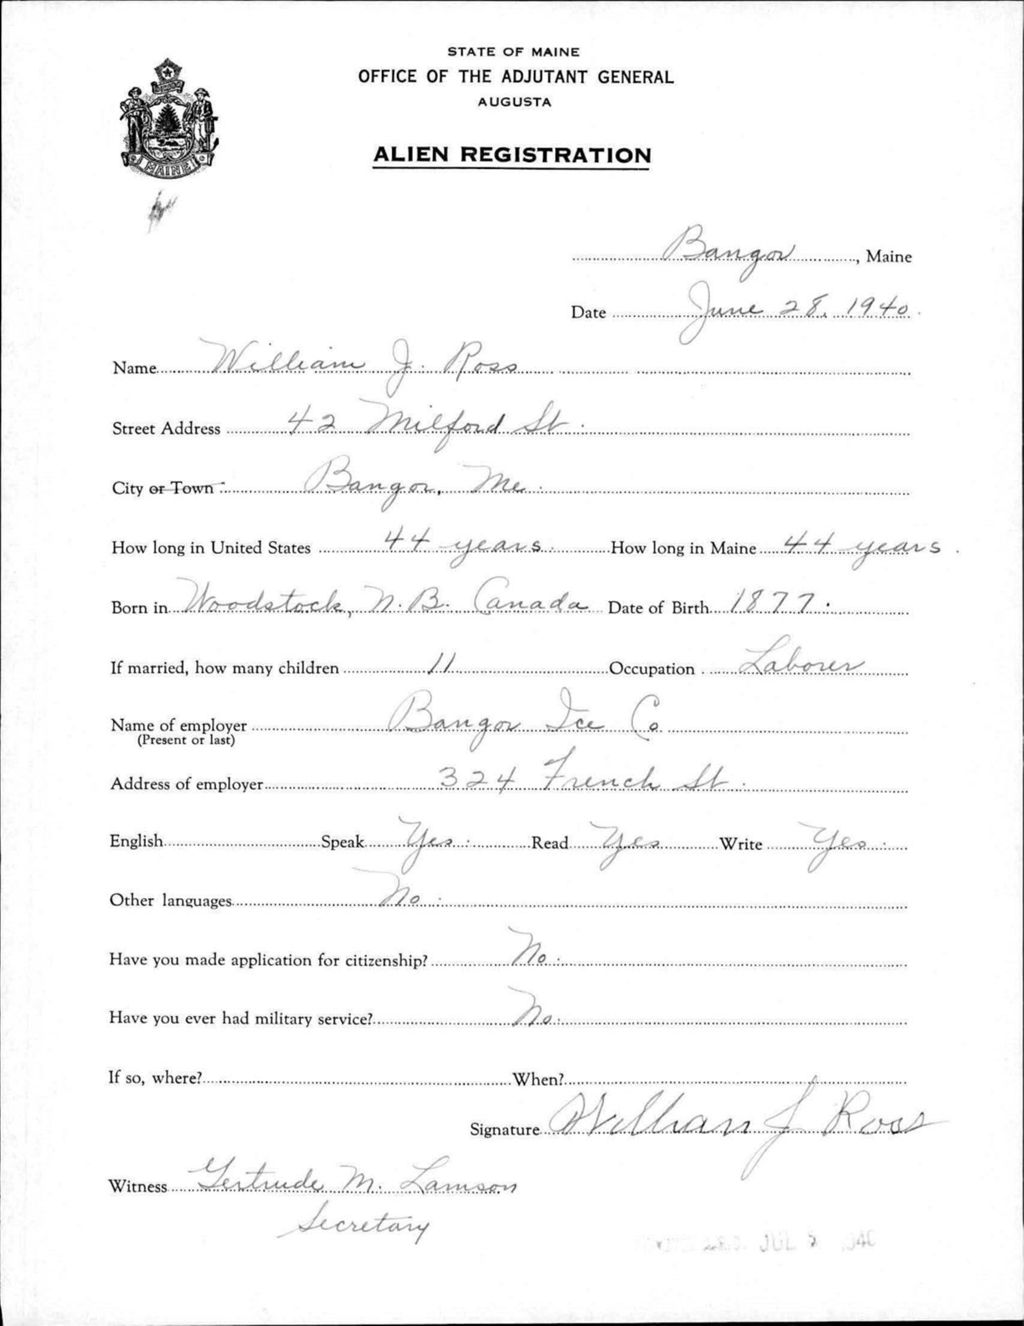 STATE OF MAINE
OFFICE OF THE ADJUTANT GENERAL
AUGUSTA
ALIEN REGISTRATION
MAINE
Bangor, Maine
Date June 28, 1940.
Name William J. Ross
Street Address 42 Milford St.
City or Town Bangor, Me.
How long in United States 44 years. How long in Maine 44 years.
Born in Woodstock, N.B. Canada Date of Birth 1877.
If married, how many children 11 Occupation Laborer
Name of employer Bangor Ice Co.
(Present or last)
Address of employer 324 French St.
English Speak Yes. Read Yes Write Yes.
Other languages No.
Have you made application for citizenship? No.
Have you ever had military service? No.
If so, where? When?
Signature William J Ross
Witness Gertrude M. Lamson
Secretary
JUL